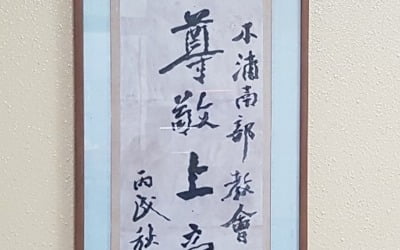 木浦南部教會
尊敬上
丙戌秋